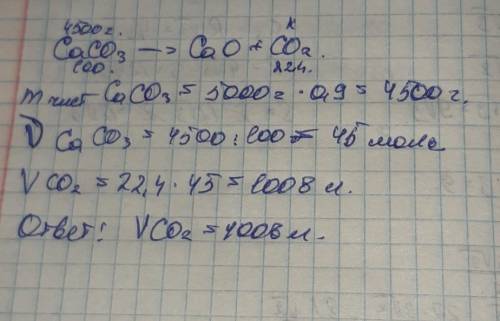 4500г. х
CaCO₃ —> CaO + CO₂.
100. 22,4.
m чист CaCO₃ = 5000г · 0,9 = 4500г.
ν CaCO₃ = 4500 : 100 = 45 моль
V CO₂ = 22,4 · 45 = 1008 л.
Ответ: VCO₂ = 1008 л.